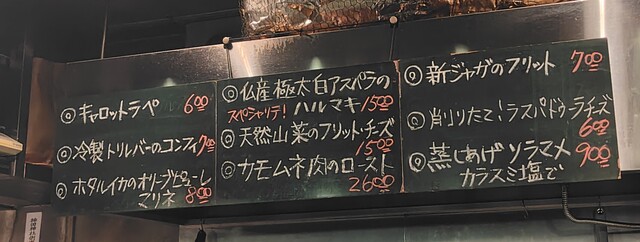 ◎キャロットラペ 600
◎冷製トリレバーのコンフィ 700
◎ホタルイカのオリーブピューレ
マリネ 800
◎仏産極太白アスパラの
スペシャリテ!ハルマキ 1500
◎天然山菜のフリット・チーズ
1500
◎カモムネ肉のロースト
2600
◎新ジャガのフリット 700
◎削りたて!ラスパドゥーラチーズ
600
◎蒸しあげソラマメ 900
カラスミ塩で